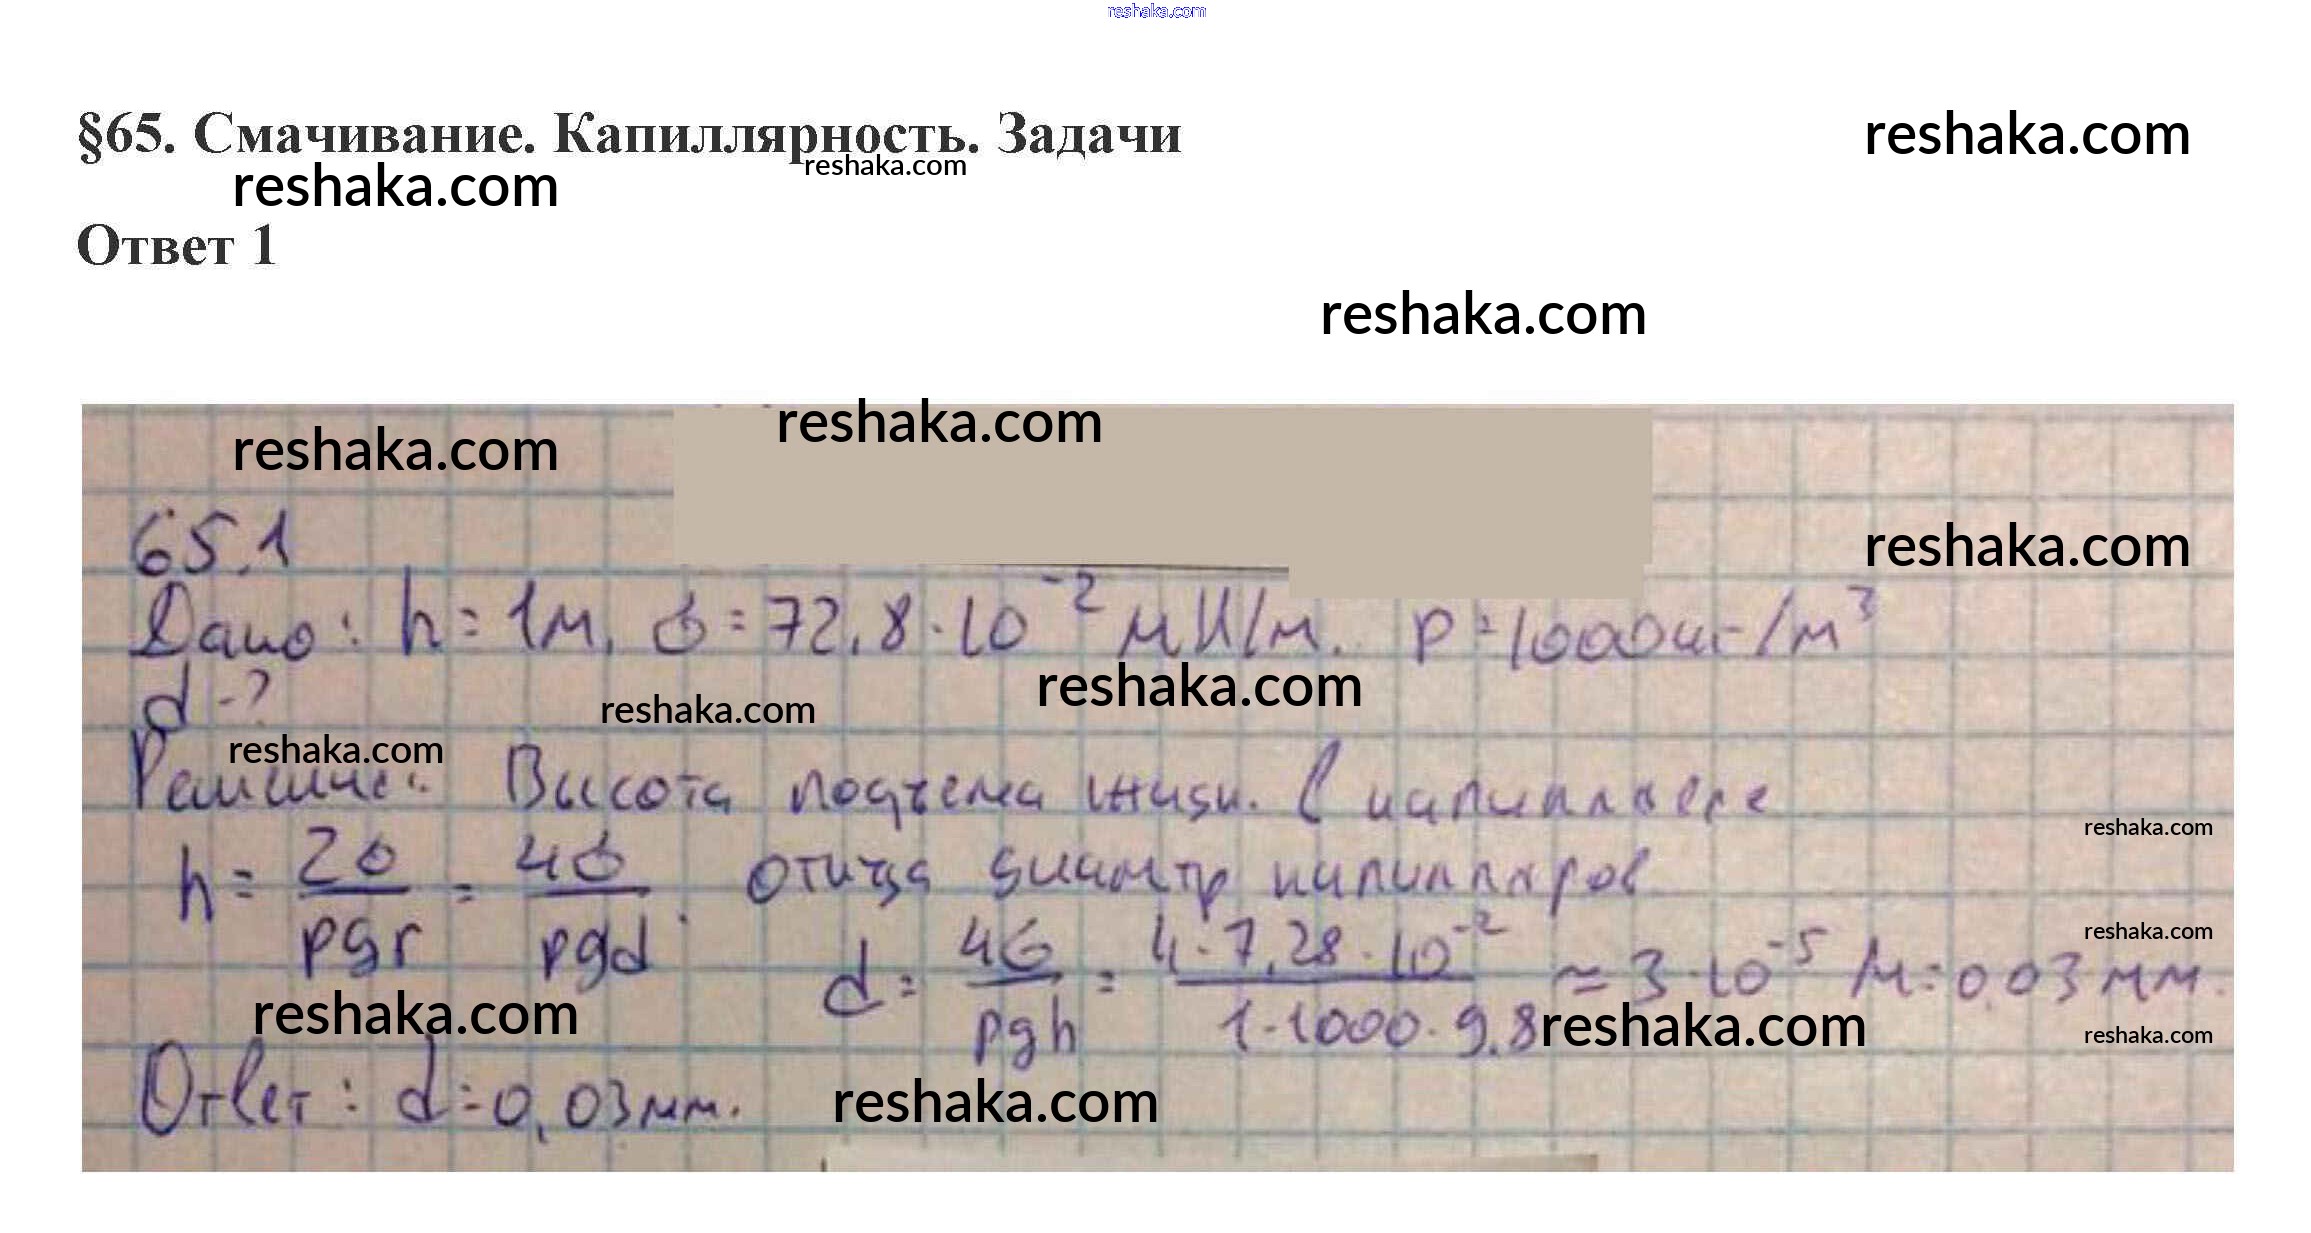 reshaka.com
§65. Смачивание. Капиллярность. Задачи
reshaka.com
reshaka.com
reshaka.com
Ответ 1
reshaka.com
reshaka.com
reshaka.com
65.1
reshaka.com
Дано: h = 1м, σ = 72,8·10⁻² мН/м. ρ = 1000 кг/м³
d - ?
reshaka.com
reshaka.com
reshaka.com
Решение: Высота подъема жидк. в капилляре
reshaka.com
h = 2σ/ρgr = 4σ/ρgd. отсюда диаметр капилляров
reshaka.com
d = 4σ/ρgh = 4·7,28·10⁻²/1·1000·9,8 ≈ 3·10⁻⁵ м = 0,03 мм.
reshaka.com
reshaka.com
reshaka.com
Ответ: d = 0,03 мм.
reshaka.com